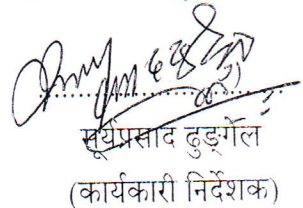 सूर्यप्रसाद ढुङ्गेल
(कार्यकारी निर्देशक)